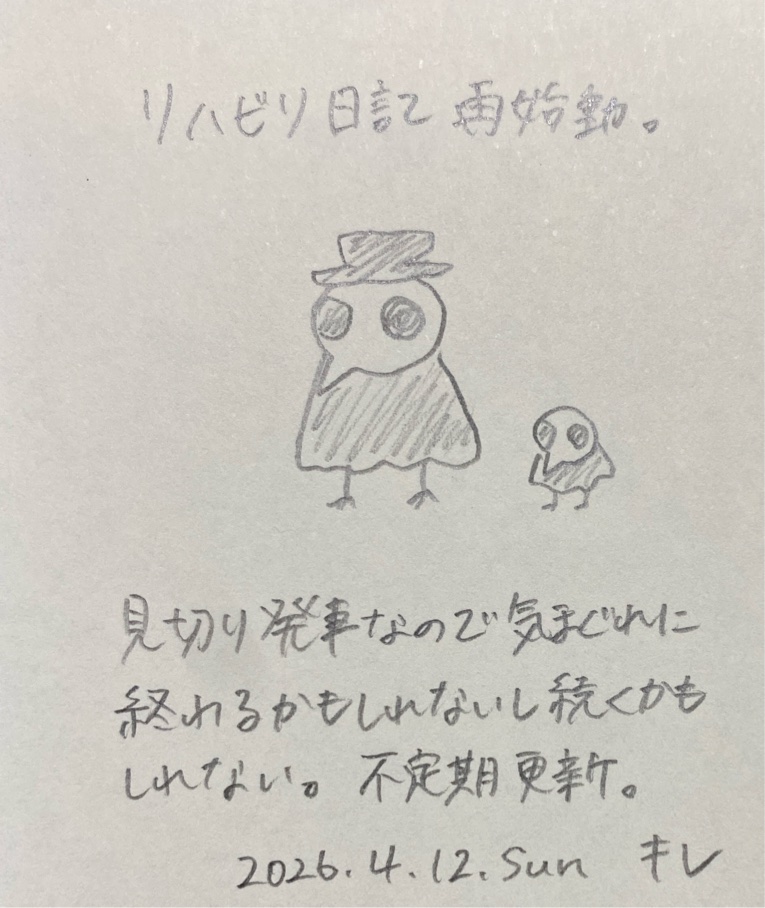 リハビリ日記 再始動。
見切り発車なので気まぐれに
終わるかもしれないし続くかも
しれない。不定期更新。
2026.4.12.Sun キレ